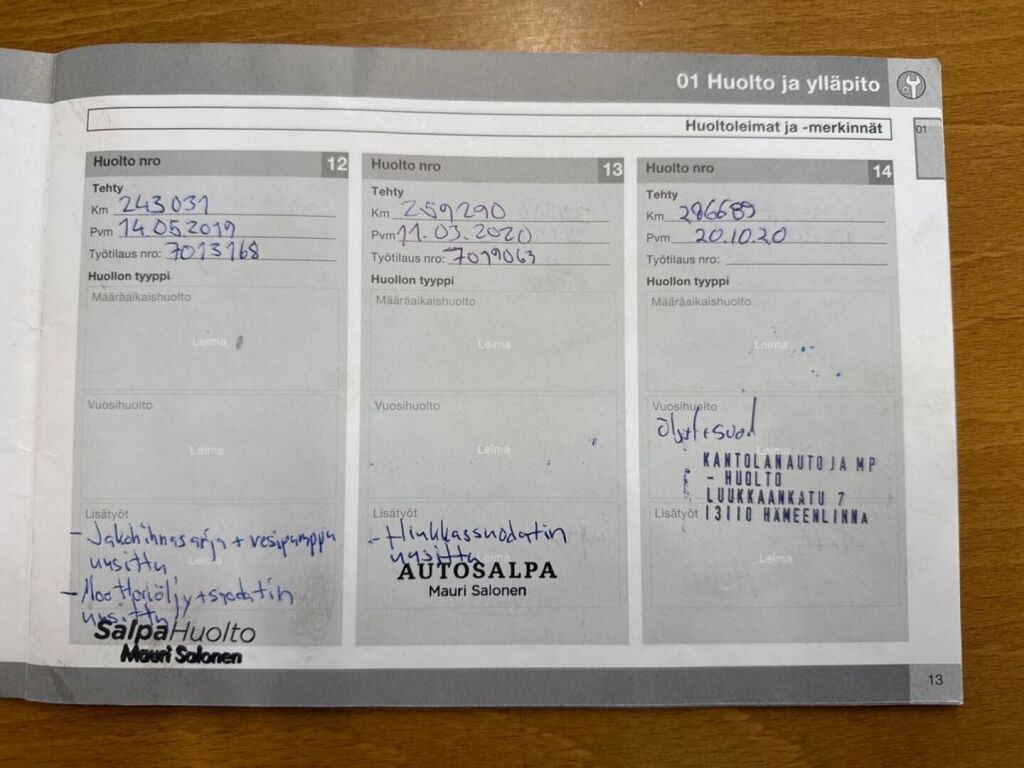 01 Huolto ja ylläpito
01
Huoltoleimat ja -merkinnät
Huolto nro 12
Tehty
Km 243031
Pvm 14.05.2019
Työtilaus nro: 7013168
Huollon tyyppi
Määräaikaishuolto
Leima
Vuosihuolto
Leima
Lisätyöt
- Jakohihnasarja + vesipumppu
uusittu
Leima
- Moottoriöljy + suodatin
uusittu
SalpaHuolto
Mauri Salonen
Huolto nro 13
Tehty
Km 259290
Pvm 11.03.2020
Työtilaus nro: 7019063
Huollon tyyppi
Määräaikaishuolto
Leima
Vuosihuolto
Leima
Lisätyöt
- Hiukkassuodatin
uusittu
AUTOSALPA
Mauri Salonen
Huolto nro 14
Tehty
Km 286689
Pvm 20.10.20
Työtilaus nro:
Huollon tyyppi
Määräaikaishuolto
Leima
Vuosihuolto
Leima
KANTOLANAUTO JA MP
- HUOLTO
LUUKKAANKATU 7
13110 HÄMEENLINNA
Lisätyöt
Leima
13